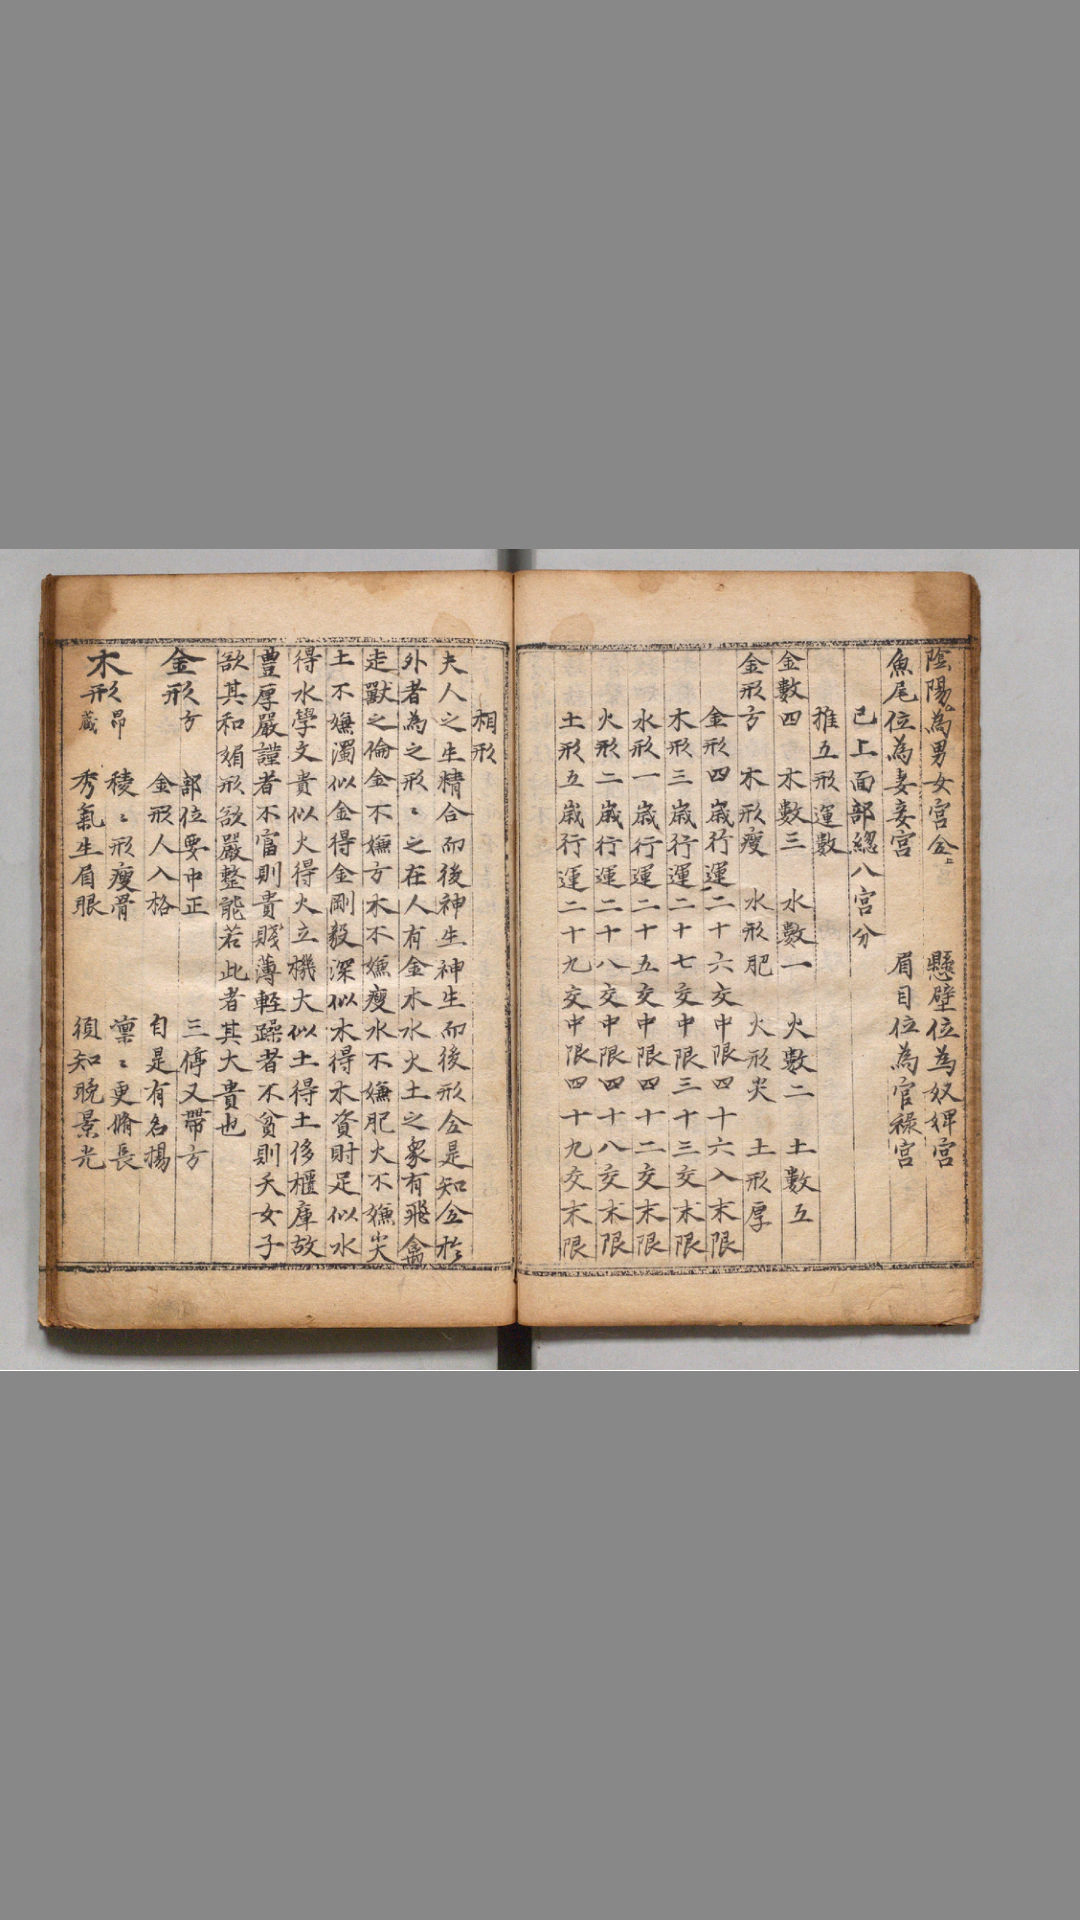 陰陽為男女宮全上 懸壁位為奴婢宮
魚尾位為妻妾宮 眉目位為官祿宮
已上面部緫八宮分
推五形運數
金數四 木數三 水數一 火數二 土數五
金形方 木形瘦 水形肥 火形尖 土形厚
金形四歲行運二十六交中限四十六入末限
木形三歲行運二十七交中限三十三交末限
水形一歲行運二十五交中限四十二交末限
火形二歲行運二十八交中限四十八交末限
土形五歲行運二十九交中限四十九交末限
相形
夫人之生精合而後神生神生而後形全是知全於
外者為之形〻之在人有金木水火土之象有飛禽
走獸之倫金不嫌方木不嫌瘦水不嫌肥火不嫌尖
土不嫌濁似金得金剛毅深似木得木資財足似水
得水學文貴似火得火立機大似土得土侈櫃庫故
豊厚嚴謹者不富則貴賤薄輕躁者不貧則夭女子
欲其和媚形欲嚴整能若此者其大貴也
金形方 部位要中正 三停又帶方
金形人入格 自是有名揚
木形昂藏 稜〻形瘦骨 凜〻更脩長
秀氣生眉眼 須知晚景光